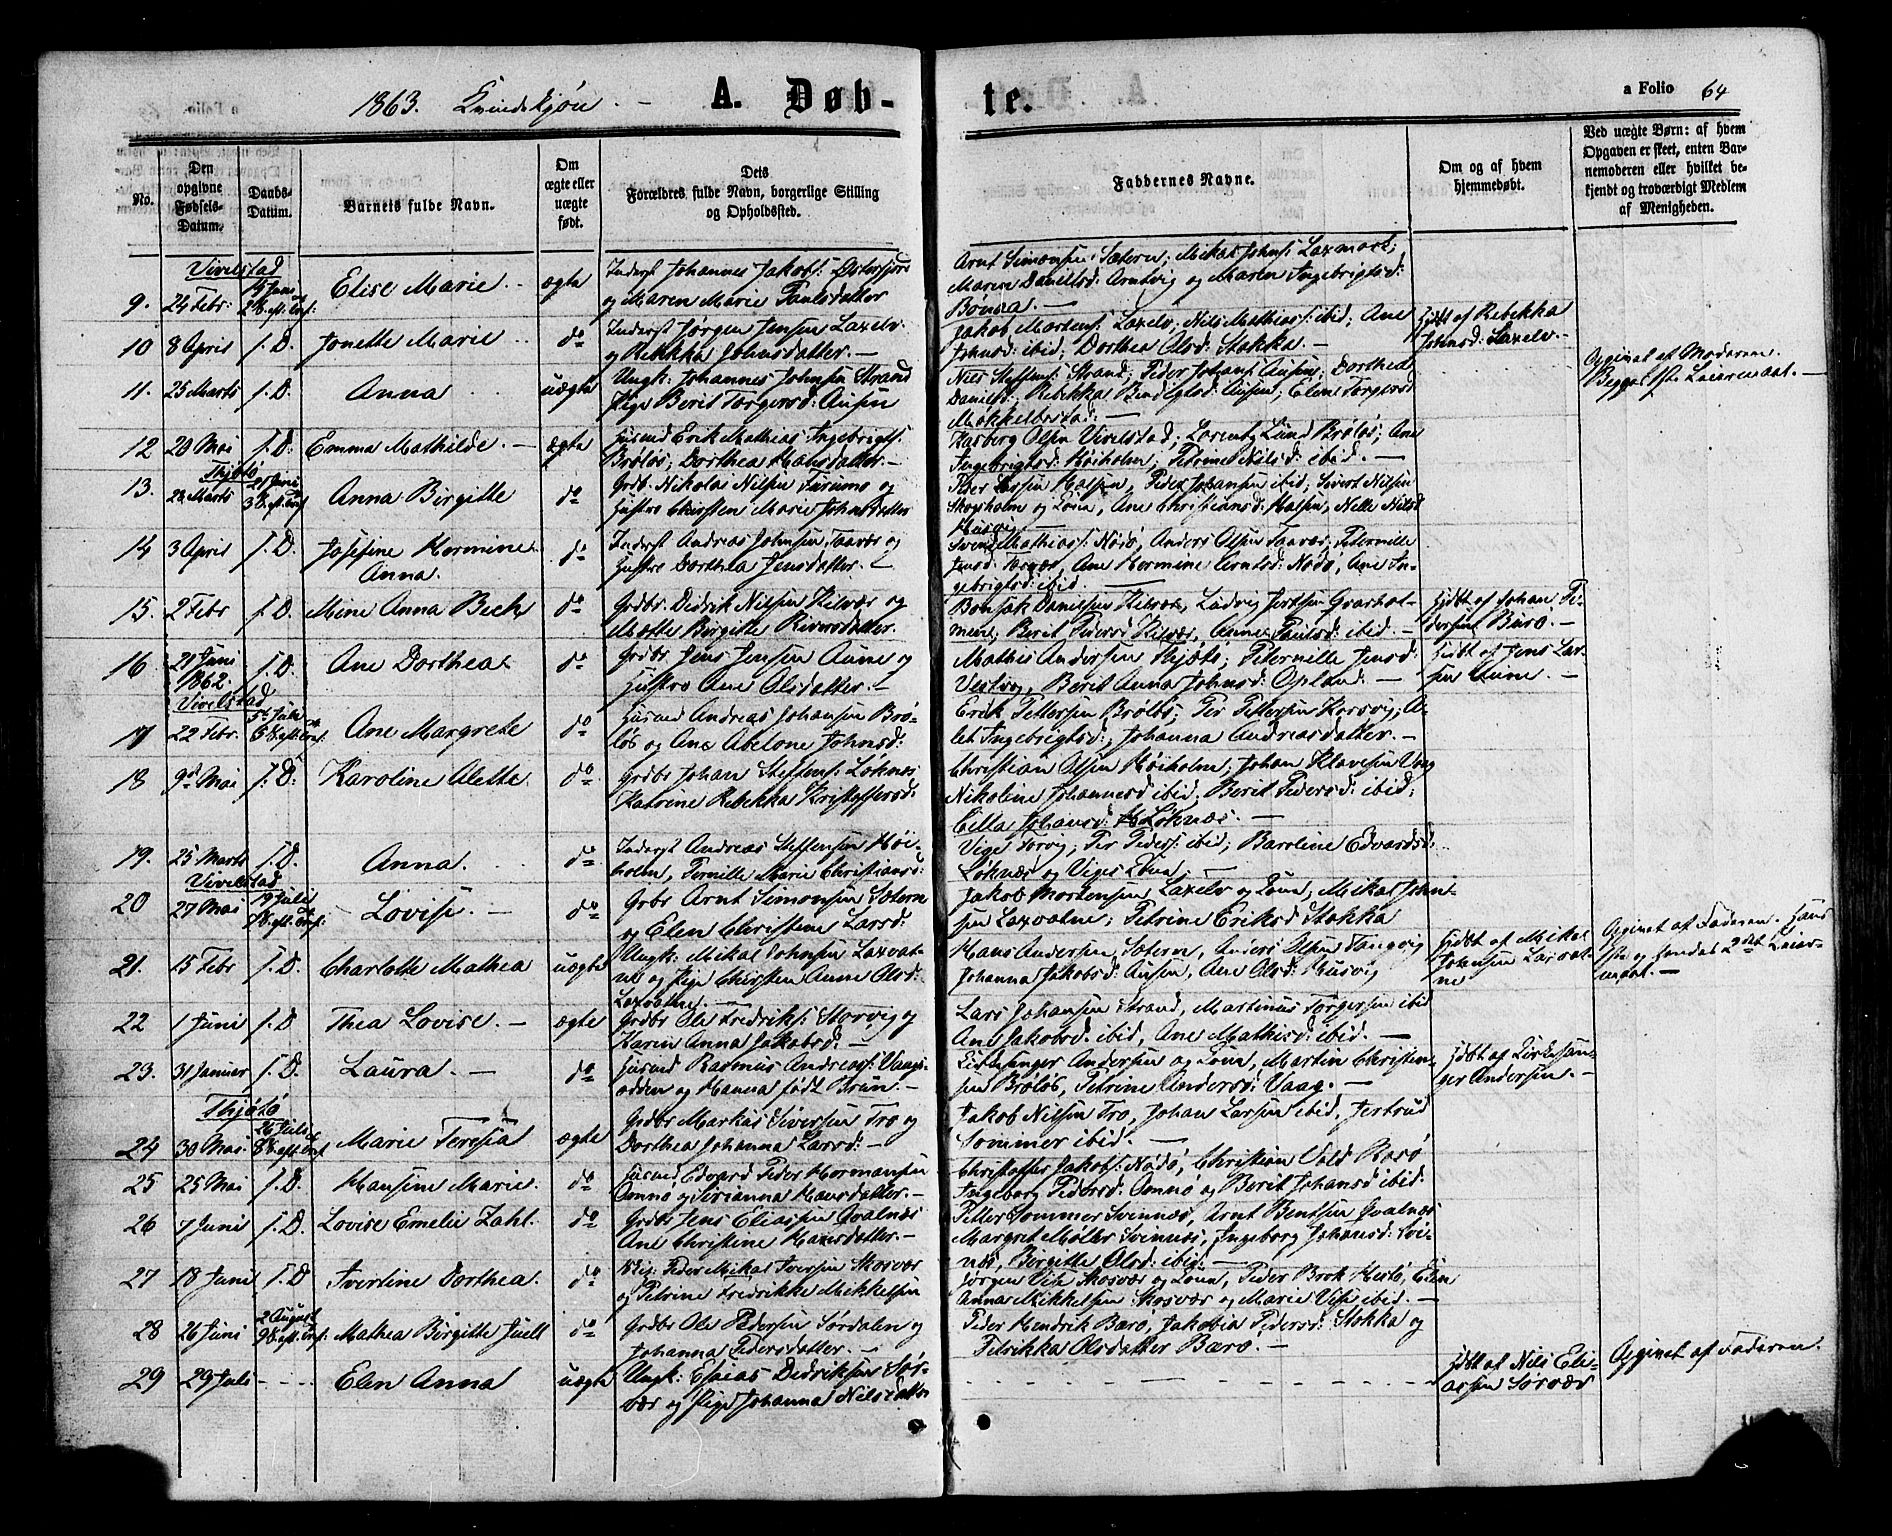 1863. Kvindekjøn. - A. Døb-te. a Folio 64
No.
Den opgivne Fødsels-Datum.
Daabs-Datum.
Barnets fulde Navn.
Om ægte eller uægte født.
Dets Forældres fulde Navn, borgerlige Stilling og Opholdssted.
Faddernes Navne.
Om og af hvem hjemmedøbt.
Ved uægte Børn: af hvem Opgaven er skeet, enten Barnemoderen eller hvilket bekjendt og troværdigt Medlem af Menigheden.
Vivelstad
9. 24 Febr: 14 Juni Elise Marie. - ægte Inderst Johannes Jakobs:
og Maren Marie Paulsdatter
Arnt Simonsen Sæteren; Mikal Johns: Laxmark;
Maren Danielsd: Arntvig og Maren Ingebrigtsd:
Bønaa. -
10 8 April S. D. Jonette Marie do Inderst Jørgen Jensen Laxelv.
og Rebekka Johnsdatter. -
Jakob Mortens: Laxelv, Nils Mathias: ibid; Ane
Johnsd: ibid; Dorthea Olsd: Stokka. -
Hjdbt af Rebekka
Johnsd: Laxelv. -
11. 25 Marts S. D. Anna uægte Ungk: Johannes Johnsen Strand
Pige Berit Torgersd: Ausen
Niels Steffens: Strand; Peder Johans: Ausen; Dorthea
Danielsd; Rebekka Bendigtsd: Ausen; Elene Torgersd
Møkkelbostad: -
Opgivet af Moderen.
Begges 1ste Leiermaal. -
12 20 Mai S. D: Emma Mathilde. - ægte Husmd Erik Mathias Ingebrigts:
Brøløs; Dorthea Hansdatter. -
Hartvig Olsen Vivelstad; Lorentz Lund Brøløs; Ane
Ingebrigtsd: Høiholm; Petrine Nilsd: ibid. -
Thjøtø
13. 22 Marts 21 Juni Anna Birgitte do Grdb. Nikolai Nilsen Turumo og
Hustro Chirsten Marie Johnsdatter
Peder Larsen Halsen, Peder Johansen ibid; Sivert Nilsen
Skogsholm og Kona, Ane Christiansd: Halsen, Nelle Nilsd
Husvig -
14 3 April S. D. Josefine Hermine
Anna. do Inderst Andreas Johnsen Taavær og
Hustro Dorthea Jensdatter. -
Svend Mathias: Rødø, Anders Olsen Taavær, Peternille
Jensd: Torgær, Ane Hermine Arntsd: Rødø, Ane In-
gebrigtsd: ibid. -
15. 2 Febr S. D. Mine Anna Bech do Grdbr. Didrik Nilsen Kilvær og
Mætte Birgitte Riversdatter.
Bonsak Danielsen Kilvær, Ludvig Jertsen Gvarhol-
mene; Berit Pedersd Kilvær, Anne Paulsd: ibid. -
Hjdbt af Johan Pe-
dersen Burø. -
16 21 Juni
1862. S. D. Ane Dorthea do Grdbr Jens Jensen Aune og
Hustro Ane Olsdatter. -
Mathis Andersen Thjøtø; Peternille Jensd:
Vestvog, Berit Anna Johnsd: Opland: -
Hjdbt af Jens Lar-
sen Aune. -
Vivelstad
17 22 Febr. 5te Juli Ane Margrete do Husmd Andreas Johansen Brø-
løs og Ane Abelone Johnsd:
Erik Pettersen Brøløs; Per Pettersen Horsvig; A-
let Ingebrigtsd:; Johanna Andreasdatter. -
18 9d Mai S. D: Karoline Alette. do Grdbr Johan Steffens: Løknæs
Katrine Rebekka Kristoffersd:
Christian Olsen Høiholm; Johan Klavesen Vaag
Nikoline Johannesd ibid; Berit Pedersd: ibid;
Cilla Johansd: Løknæs. -
19. 25 Marts S. D. Anna. do Inderst Andreas Steffensen Høi-
holm, Pernille Marie Christiansd:
Vige Forvig; Per Peders: ibid; Baroline Edvardsd:
Løknæs og Viges Kona. -
Vivelstad
20 27 Mai 19 Juli Lovise. - do Grbr Arnt Simonsen Sæteren
og Elen Christine Larsd:
Jakob Mortensen Laxelv og Kona, Mikal John-
sen Laxvatne; Petrine Eriksd Stokka
21. 15 Febr S. D. Charlotte Mathea uægte Ungk: Mikal Johnsen Laxvat-
ne og Pige Chirsten Anne Olsd:
Laxvatne. -
Hans Andersen Sætern, Anders Olsen Tangvig
Johanna Jakobsd: Ausen, Ane Olsd: Husvig
Hjdbt af Mikal
Johnsen Laxvat-
ne
Opgivet af Faderen. Hans
1ste og hendes 2det Leier-
maal. -
22 1 Juni S. D Thea Lovise. - ægte Grdbr Ole Fredriks: Storvig og
Karen Anna Jakobsd: -
Lars Johansen Strand, Martinus Torgersen ibid
Ane Jakobsd. ibid, Ane Mathisd: ibid. -
23. 31 Januer S. D. Laura. - do Husmd Rasmus Andreas: Vaags-
odden og Hanna født Brun. -
Kirkesanger Andersen og Kona, Martin Christen-
sen Brøløs, Petrine Andersd: Vaag. -
Hjdbt af Kirkesan-
ger Andersen. -
Thjøtø
24 30 Mai. 26 Juli Marie Teresia ægte Grdbr Markus Siversen Tro og
Dorthea Johanna Larsd: -
Jakob Nilsen Tro, Johan Larsen ibid, Jertrud
Sommer ibid. -
25 25 Mai S. D. Hansine Marie. do Husmd Edvard Peder Hermansen
Omnø og Sirianna Hansdatter. -
Christoffer Jakobs: Rødø, Christian Vold Rosø
Ingeborg Pedersd: Omnø og Berit Johansd ibid:
26 7 Juni S. D. Lovise Emelie Zahl. do Grdbr Jens Eliassen Qvalnæs
Ane Christine Hansdatter. -
Petter Sommer Svinnæs, Arnt Bentsen Qvalnæs
Margret Møller Svinnæs, Ingeborg Johansd: Svi-
næs, Birgitte Olsd: ibid: -
27 18 Juni S. D Ivertine Dorthea. do Peder Mikal Iversen Skosvær
og Petrine Fredrikke Mikkelsen
Jørgen Vise Skosvær og Kona, Peder Brok Herlø, Elen
Anna Mikkelsen Skosvær og Marie Vise ibid. -
28 26 Juni 2 August Mathea Birgitte Juell do Grdbr Ole Pedersen Sørdalen og
Johanna Pedersdatter. -
Peder Hendrik Bærø, Jakobia Pedersd: Stokka og
Petrikka Olsdatter Bærø. -
29 29 Juli - - - - Elen Anna uægte Ungk: Esaias Didriksen Sør-
vær og Pige Johanna Nilsdatter
Hjdbt af Nils Eli-
assen Sørvær
Opgivet af Faderen.